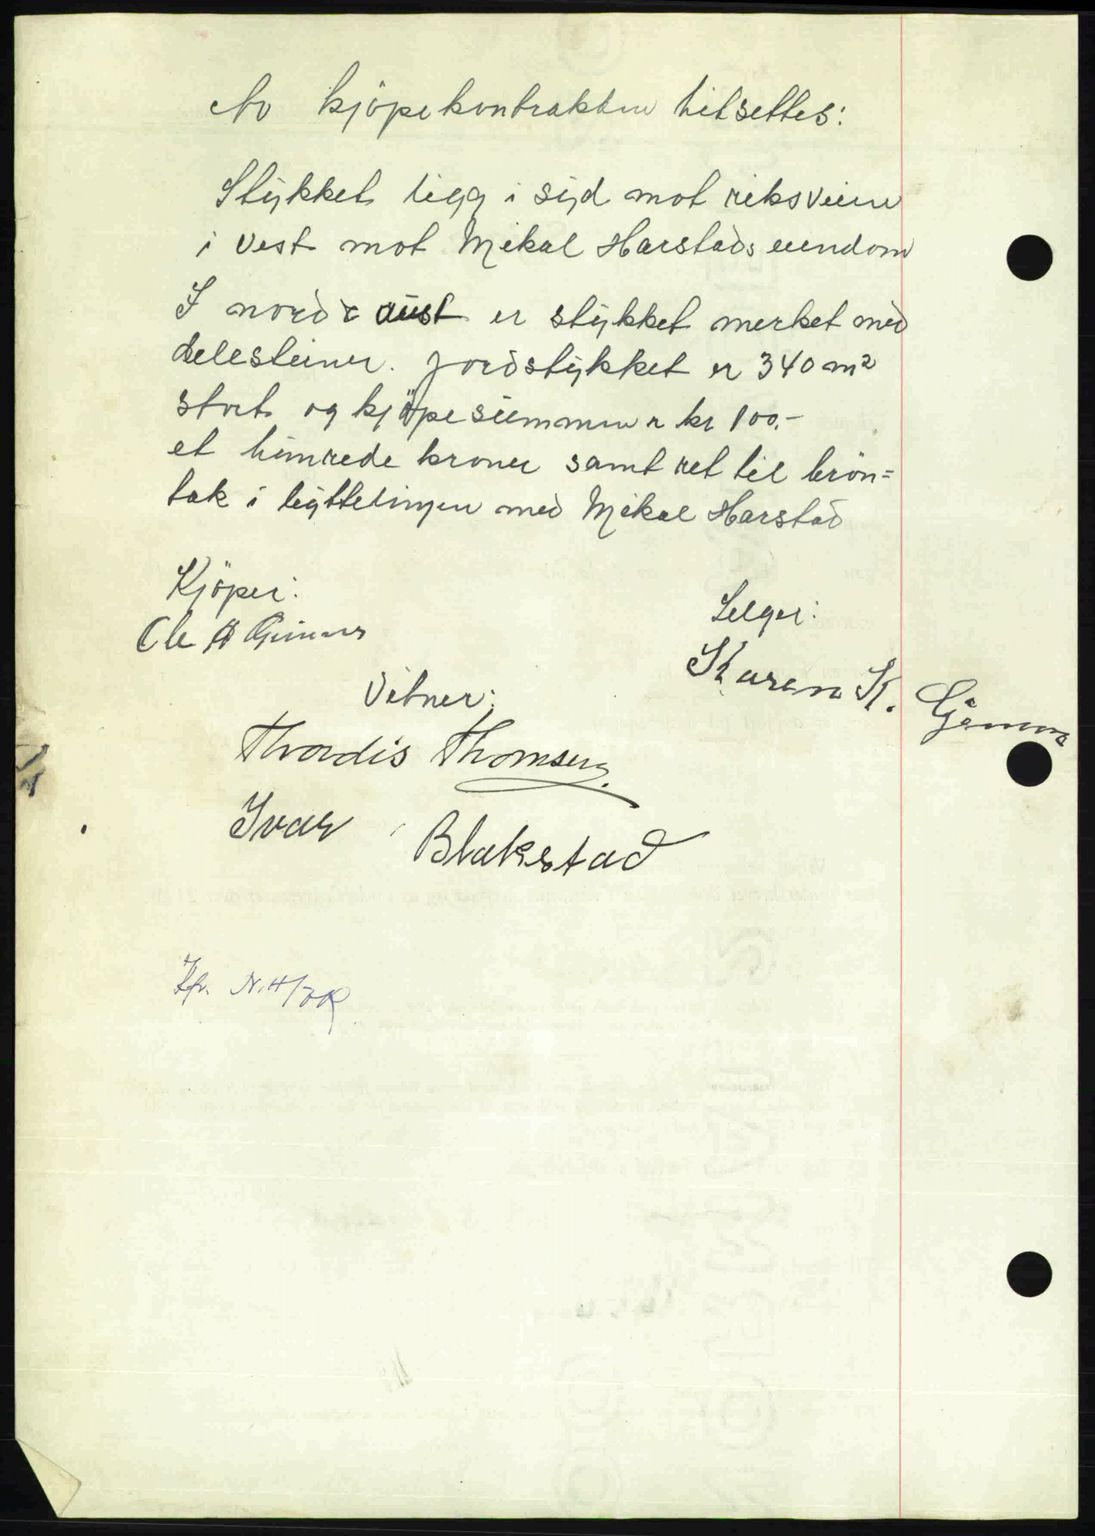 Av kjöpekontrakten hitsettes:
Stykket ligg i syd mot riksveien
i vest mot Mikal Harstads eiendom
I nord & aust er stykket merket med
delesteiner. Jordstykket er 340 m²
stort og kjöpesummen er kr 100.-
et hundrede kroner samt ret til brön=
tak i lyttelingen med Mikal Harstad
Kjöper:
Selger:
Ole A
Karen K.
Vitner:
Thordis Thomsen
Ivar Blakstad